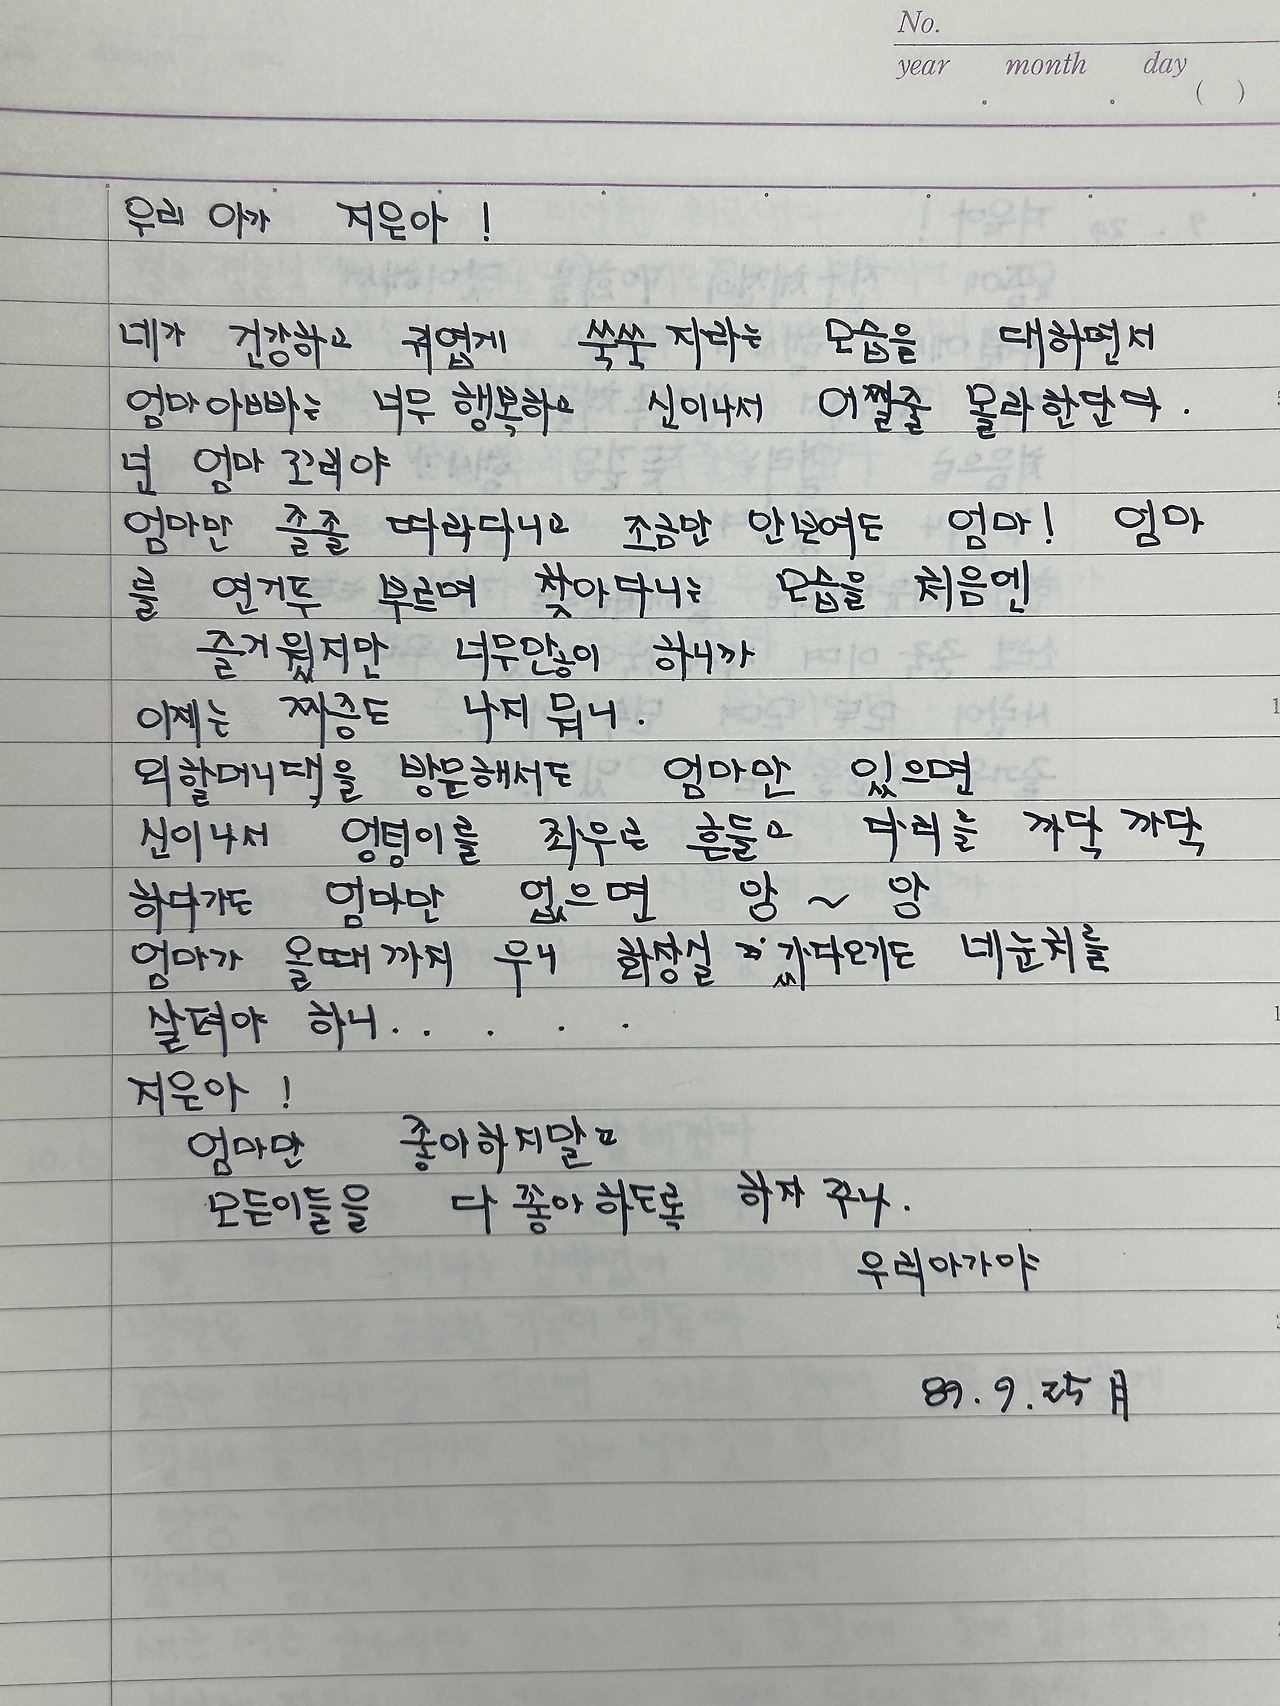 No.
year month day
( )
우리 아가 지은아 !
네가 건강하고 귀엽게 쑥쑥 자라는 모습을 대하면서
엄마아빠는 너무 행복하고 신이나서 어쩔줄 몰라한단다.
넌 엄마 꼬리야
엄마만 졸졸 따라다니고 조금만 안보여도 엄마! 엄마
를 연거푸 부르며 찾아다니는 모습을 처음엔
즐거웠지만 너무많이 하니까
이제는 짜증도 나지 뭐니.
외할머니댁을 방문해서도 엄마만 있으면
신이나서 엉텅이를 좌우로 흔들고 다리를 까닥 까닥
하다가도 엄마만 없으면 앙 ~ 앙
엄마가 올때까지 우니 화장실 갔다오기도 네눈치를
살펴야 하니. . . . .
지은아 !
엄마만 좋아하지말고
모든이들을 다 좋아하도록 하자 꾸나.
우리아가야
89. 9. 25 月